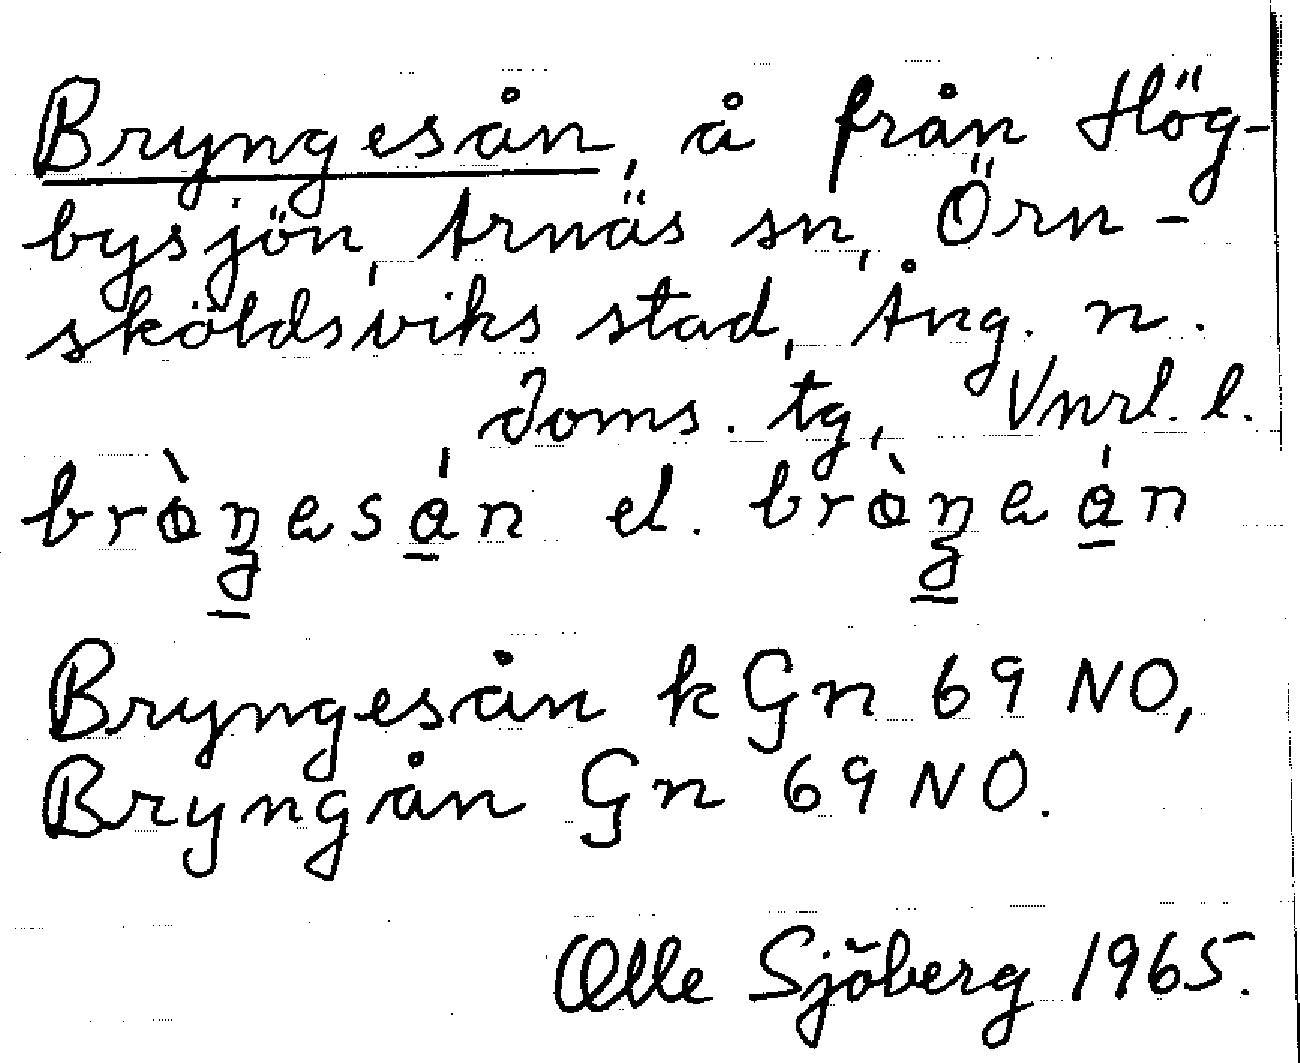 Bryngesån, å från Hög-
bysjön, Arnäs sn, Örn-
sköldsviks stad, Ång. n.
doms. tg, Vnrl. l.
el.
Bryngesån kGn 69 NO,
Bryngån Gn 69 NO.
Olle Sjöberg 1965.